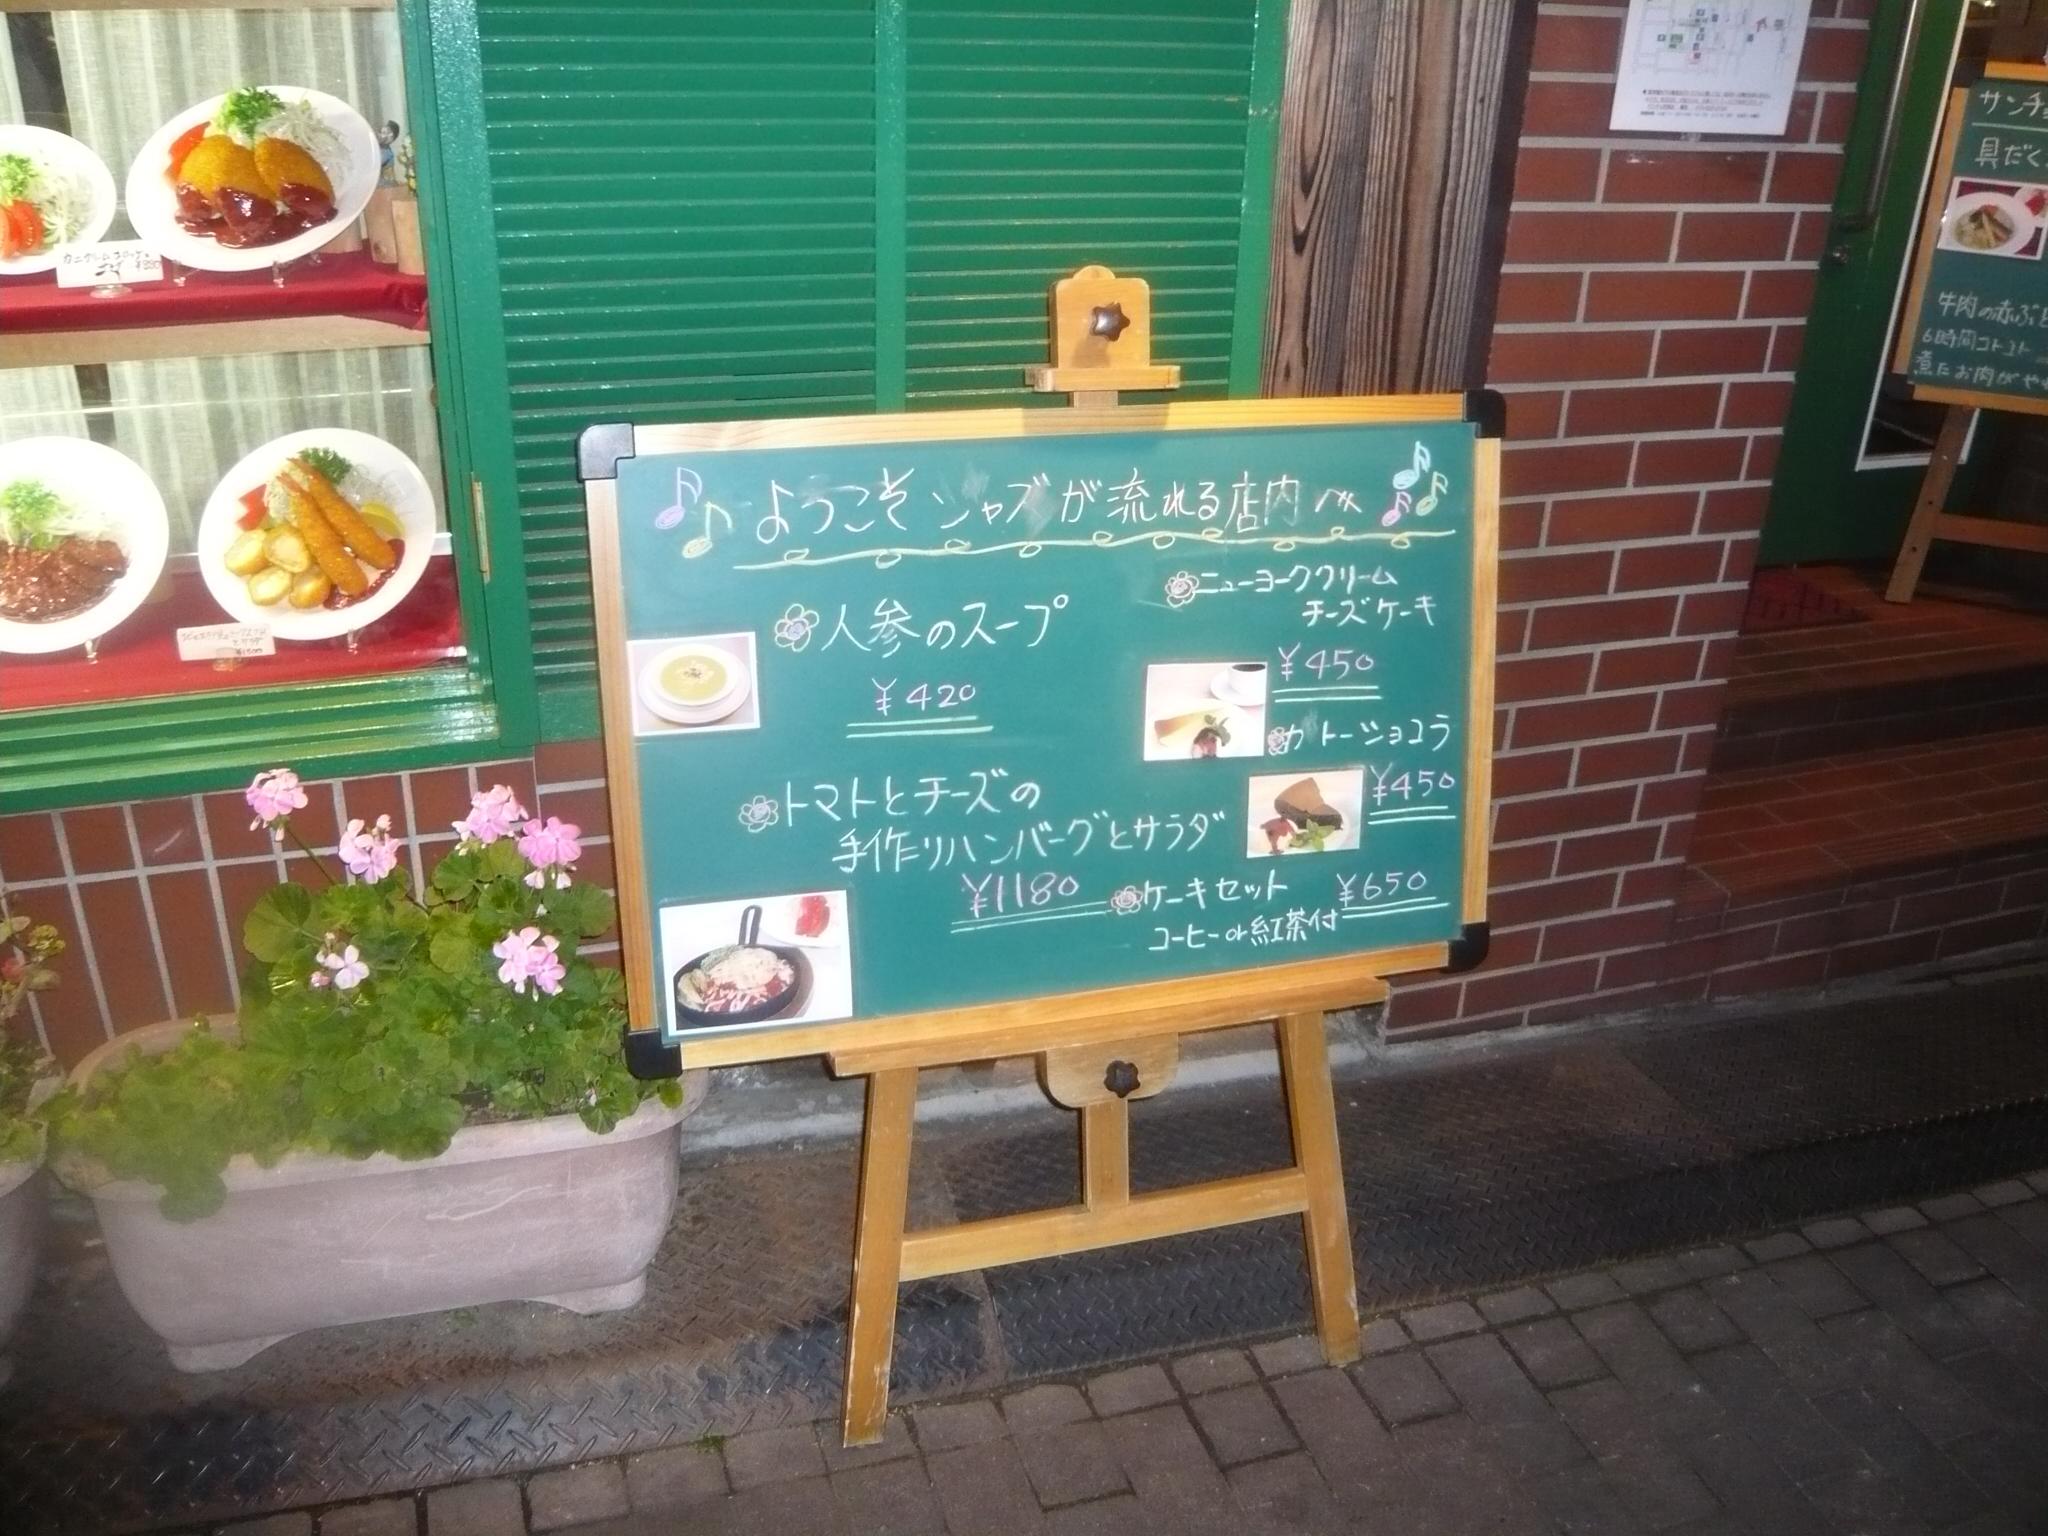 ようこそ ジャズが流れる店内へ
人参のスープ
¥420
トマトとチーズの
手作りハンバーグとサラダ
¥1180
ニューヨーククリーム
チーズケーキ
¥450
ガトーショコラ
¥450
ケーキセット ¥650
コーヒーor紅茶付
サンチョ
具だく
牛肉の赤ぶど
6時間コトコト
煮たお肉がやわ
カニクリームコロッケ